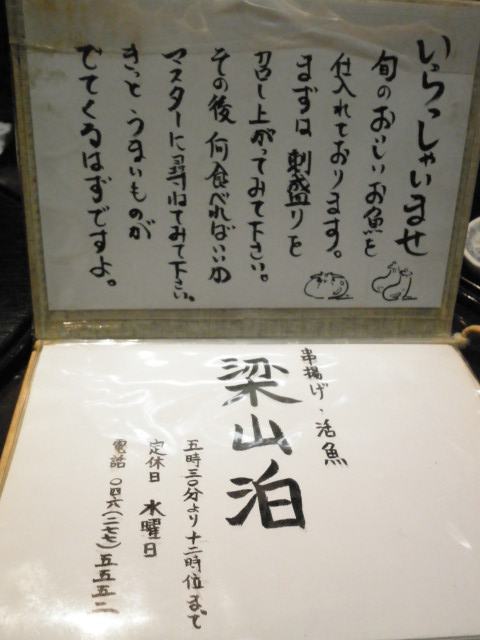 いらっしゃいませ
旬のおいしいお魚を
仕入れております。
まずは 刺盛りを
召し上がってみて下さい。
その後 何食べればいいか
マスターに尋ねてみて下さい。
きっと うまいものが
でてくるはずですよ。
串揚げ・活魚
梁山泊
五時三〇分より十二時位まで
定休日 水曜日
電話 〇四六(二七七)五五五二